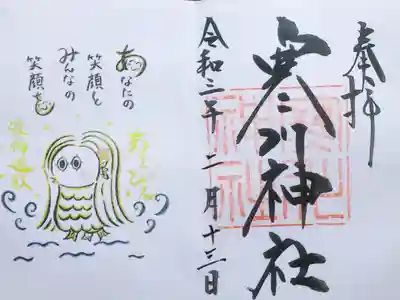 奉拝
寒川神社
令和三年二月十三日
あなたの
笑顔と
みんなの
笑顔を
あまびえ